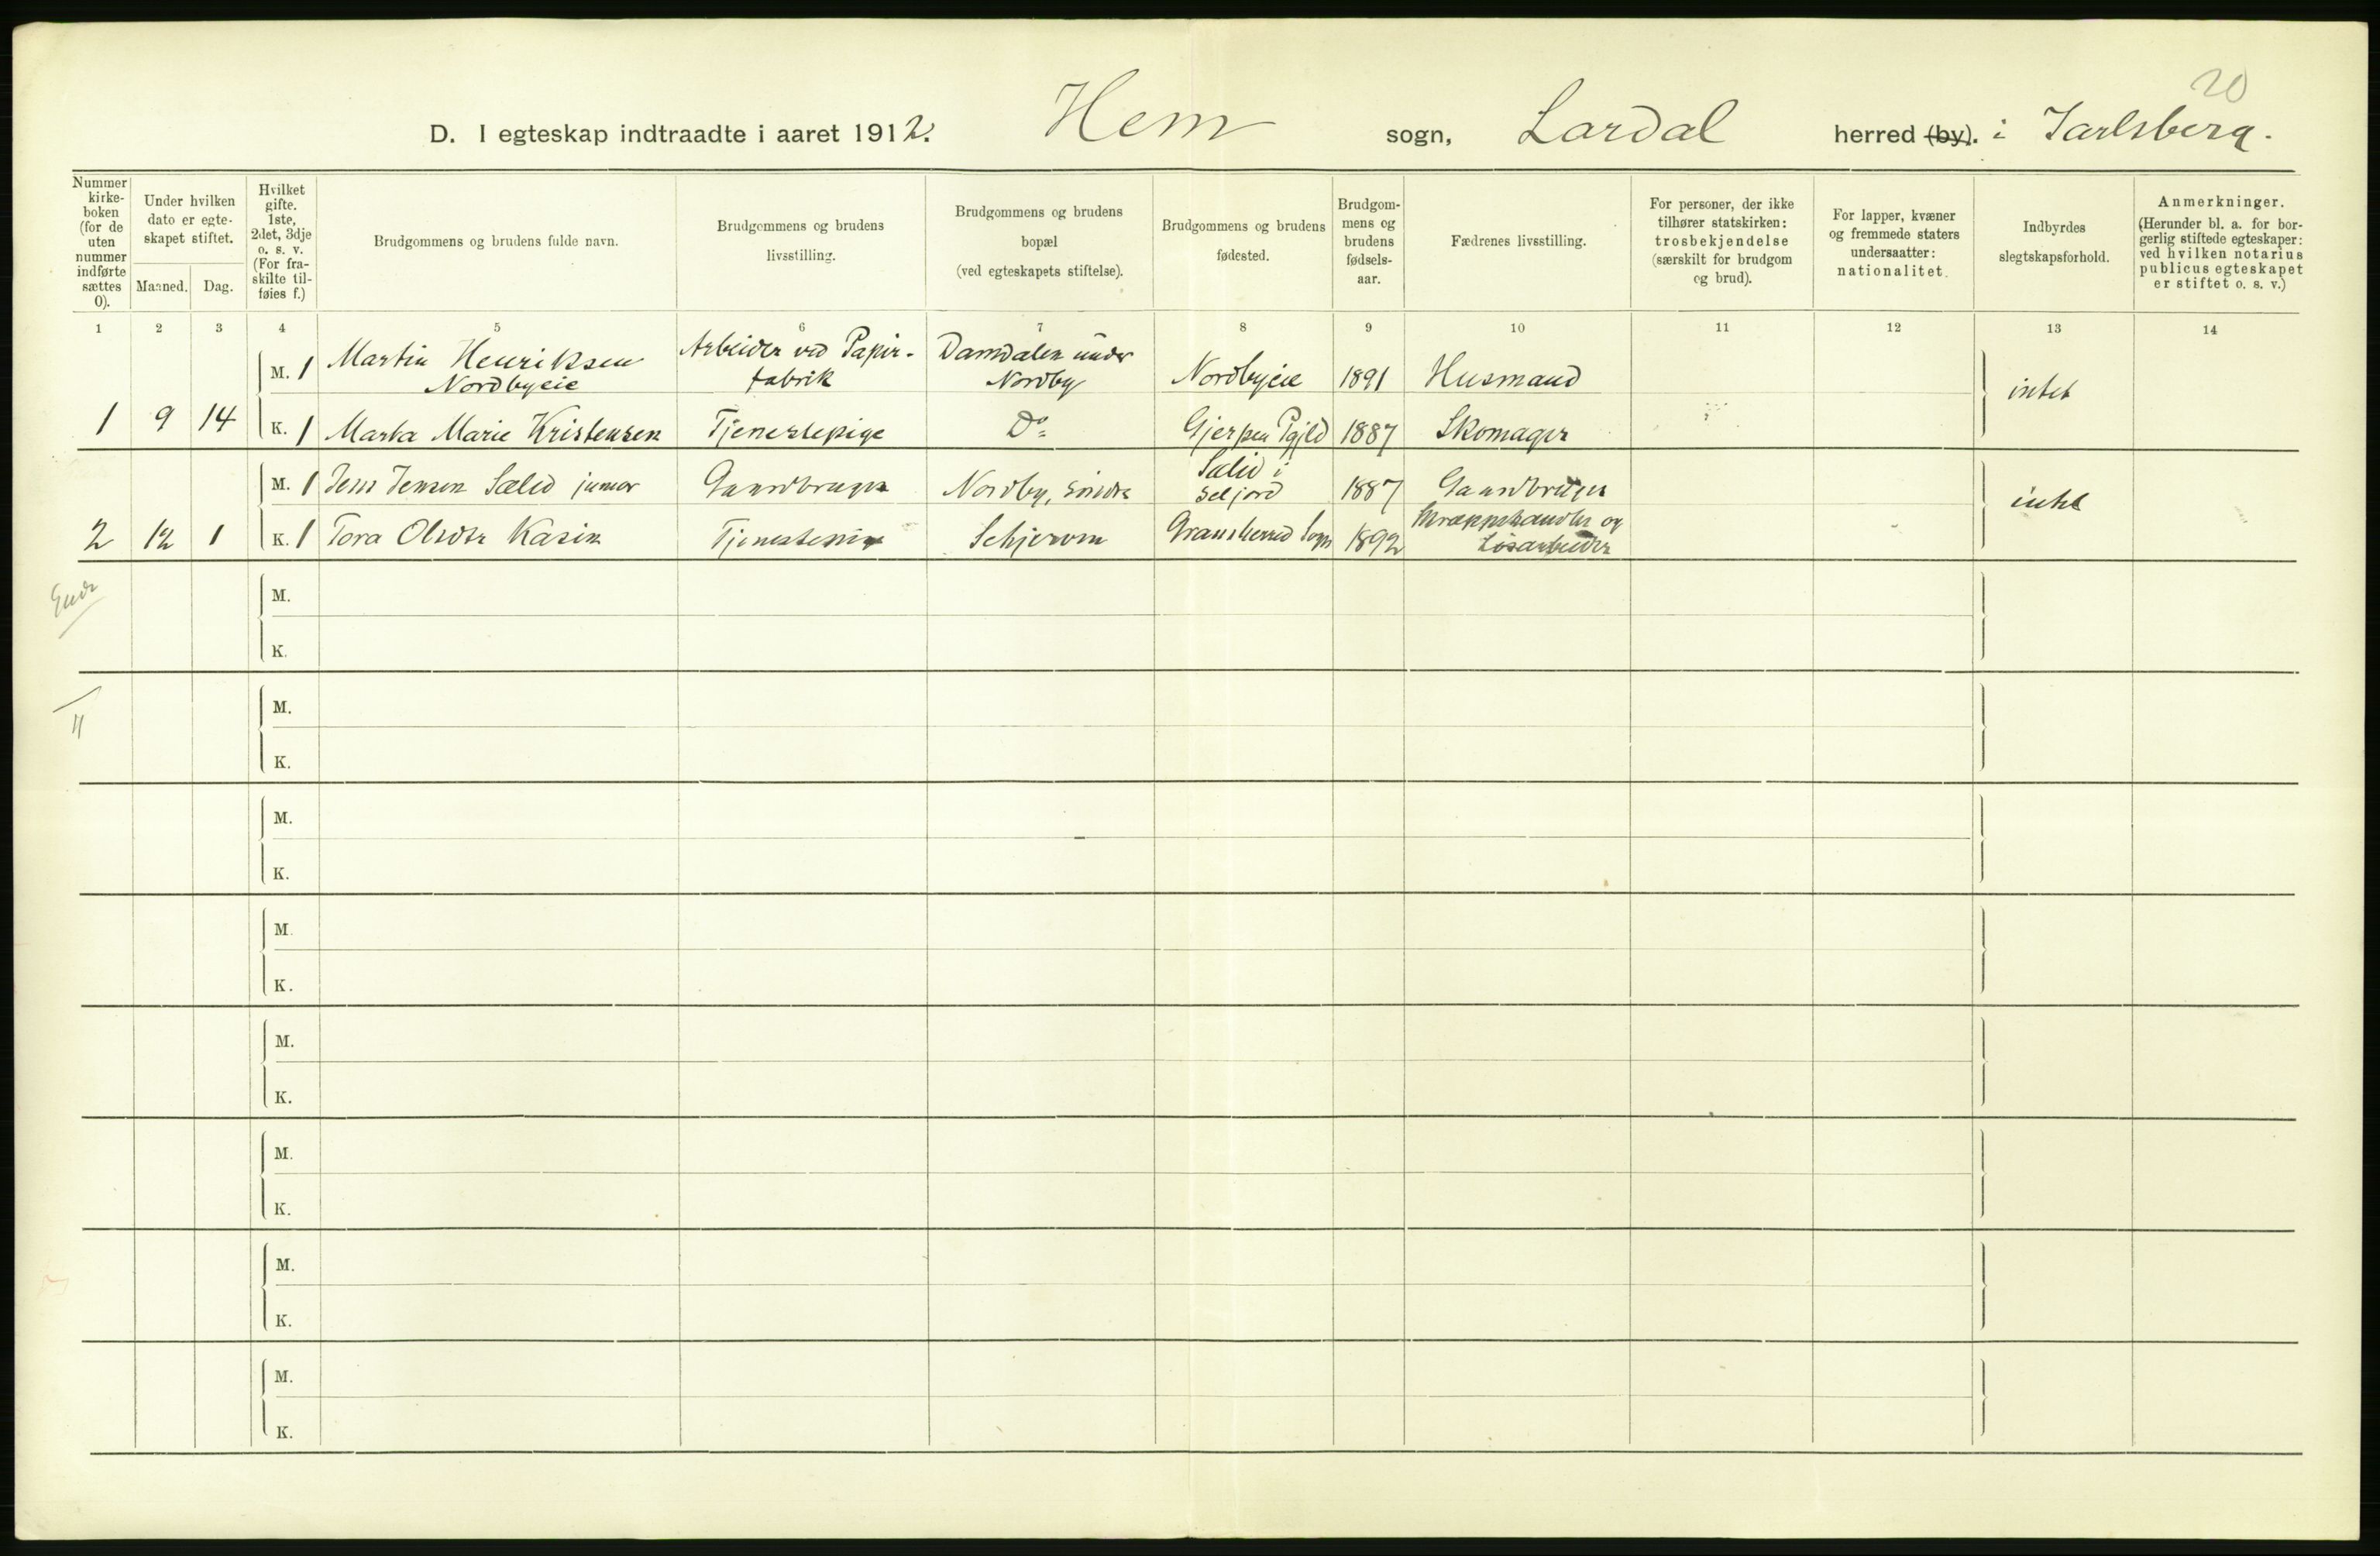 20
D. I egteskap indtraadte i aaret 1912. Hem sogn, Lardal herred (by). i Jarlsberg.
Nummer kirke-boken (for de uten nummer indførte sættes 0).
Under hvilken dato er egte-skapet stiftet.
Maaned. Dag.
Hvilket gifte. 1ste, 2det, 3dje o. s. v. (For fra-skilte til-føies f.)
Brudgommens og brudens fulde navn.
Brudgommens og brudens livsstilling.
Brudgommens og brudens bopæl (ved egteskapets stiftelse).
Brudgommens og brudens fødested.
Brudgom-mens og brudens fødsels-aar.
Fædrenes livsstilling.
For personer, der ikke tilhører statskirken: trosbekjendelse (særskilt for brudgom og brud).
For lapper, kvæner og fremmede staters undersaatter: nationalitet.
Indbyrdes slegtskapsforhold.
Anmerkninger. (Herunder bl. a. for bor-gerlig stiftede egteskaper: ved hvilken notarius publicus egteskapet er stiftet o. s. v.)
1 2 3 4 5 6 7 8 9 10 11 12 13 14
M. 1 Martin Henriksen Nordbyeie Arbeider ved Papir-fabrik Damdalen under Nordby Nordbyeie 1891 Husmand intet
1 9 14 K. 1 Marta Marie Kristensen Tjenestepige Do Gjerpen Pgjld 1887 Skomager
M. 1 Jens Jensen Sælid junior Gaardbruger Nordby, søndre Sælid i Seljord 1887 Gaardbruger intet
2 12 1 K. 1 Tora Olsdtr Kasin Tjenestepige Schjerven Gransherred Sogn 1892 Skræpphandler og Løsarbeider
M.
K.
M.
K.
M.
K.
M.
K.
M.
K.
M.
K.
M.
K.
M.
K.